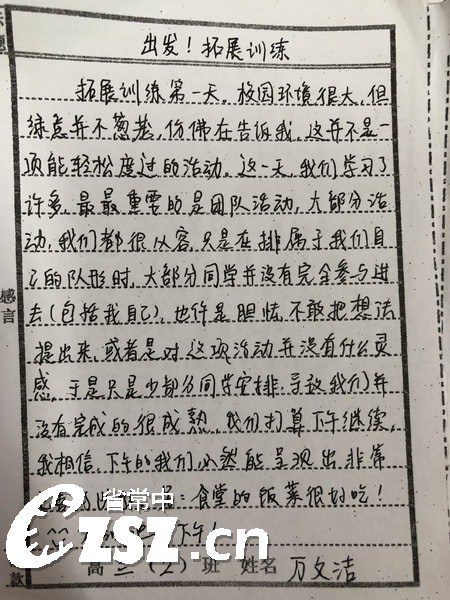 出发！拓展训练
拓展训练第一天，校园环境很大，但
绿意并不葱茏，仿佛在告诉我，这并不是一
项能轻松度过的活动。这一天，我们学习了
许多，最最重要的是团队活动，大部分活
动，我们都很从容，只是在排属于我们自
己的队形时，大部分同学并没有完全参与进
去（包括我自己），也许是胆怯，不敢把想法
提出来，或者是对这项活动并没有什么灵
感，于是只是少部分同学安排，导致我们并
没有完成的很成熟，我们打算下午继续，
我相信，下午的我们必然能呈现出非常
食堂的饭菜很好吃！
下午！
感言
高三（2）班 姓名 万文洁
省常中
CZSZ.cn